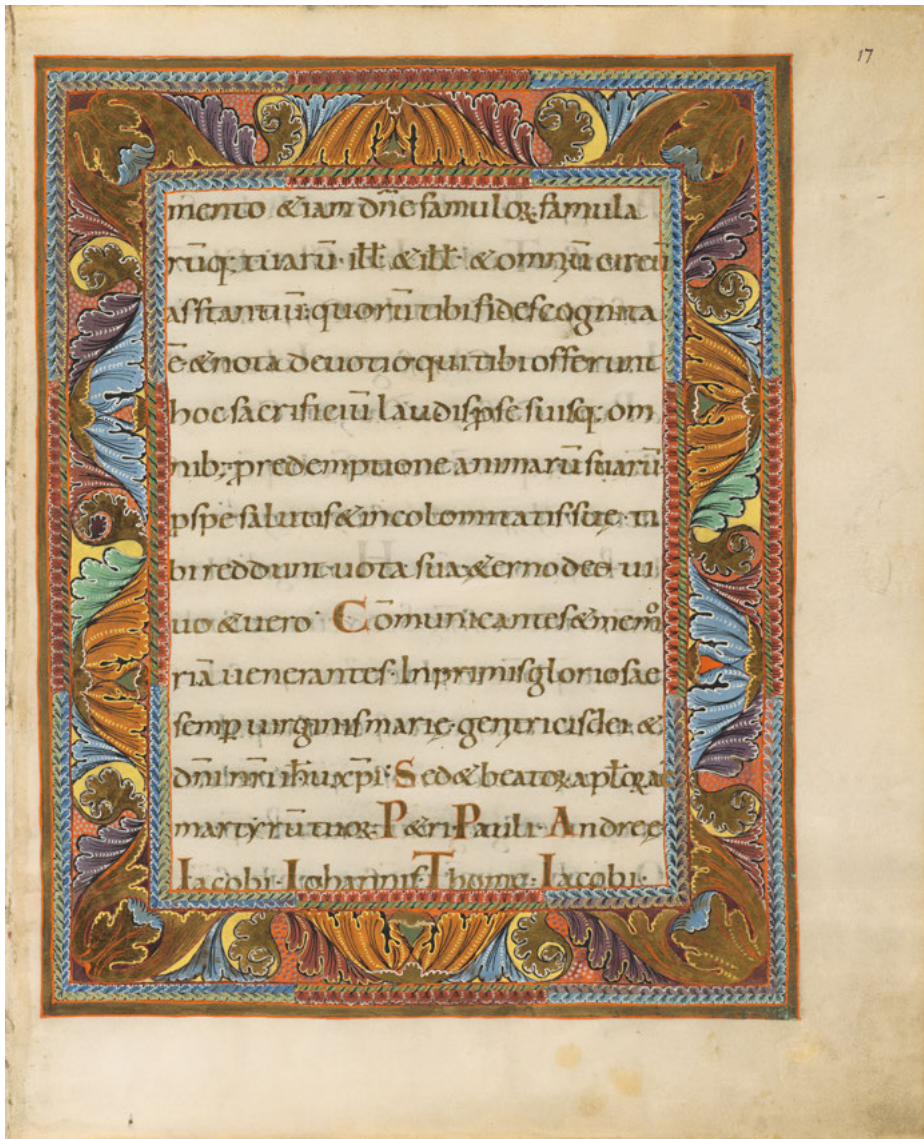 17
mento &iam dn̄e famuloꝝ famula
rūq; tuarū· ill̄ & ill̄· & omniū circū
asstantiū· quorū tibi fides cognita
ē· & nota devotio· qui tibi offerunt
hoc sacrificiū laudis, ꝓ se suisq; om
nib; ꝓ redemptione animarū suarū·
ꝓ spe salutis & incolomitatis suę· ti
bi reddunt uota sua &erno deo ui
uo & uero· Cōmunicantes & memo
riā uenerantes· Inprimis gloriosae
semꝑ uirginis marię· genitricis dei &
dn̄i nr̄i ih̄u xp̄i· Sed & beatoꝝ apl̄oꝝ ac
martyrū tuoꝝ· P&ri· Pauli· Andreę
Iacobi· Iohannis· Thomę· Iacobi·